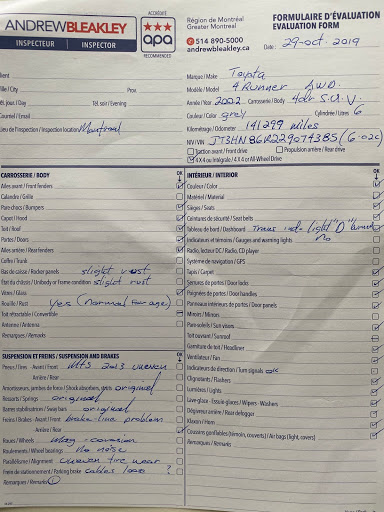 ANDREW BLEAKLEY
INSPECTEUR | INSPECTOR
ACCRÉDITÉ
apa
RECOMMENDED
Région de Montréal
Greater Montreal
514 890-5000
andrewbleakley.ca
FORMULAIRE D'ÉVALUATION
EVALUATION FORM
Date: 29-oct. 2019
Client
Ville / City Prov.
Tél. jour / Day Tél. soir / Evening
Courriel / Email
Lieu de l'inspection / Inspection location Montreal
Marque / Make Toyota
Modèle / Model 4 Runner AWD.
Année / Year 2002 Carrosserie / Body 4dr S.U.V.
Couleur / Color grey Cylindrée / Litres 6
Kilométrage / Odometer 141299 miles
NIV / VIN JT3HN86R229074385 (6-02c)
Traction avant / Front drive Propulsion arrière / Rear drive
4 X 4 ou Intégrale / 4 X 4 or All-Wheel Drive
CARROSSERIE / BODY OK
Ailes avant / Front fenders
Calandre / Grille
Pare chocs / Bumpers
Capot / Hood
Toit / Roof
Portes / Doors
Ailes arrière / Rear fenders
Coffre / Trunk
Bas de caisse / Rocker panels slight rust
État du châssis / Unibody or frame condition slight rust
Vitres / Glass
Rouille / Rust Yes (Normal for age)
Toit rétractable / Convertible
Antenne / Antenna
Remarques / Remarks
SUSPENSION ET FREINS / SUSPENSION AND BRAKES OK
Pneus / Tires - Avant / Front M+S 2x3 uneven
Arrière / Rear
Amortisseurs, jambes de force / Shock absorbers, original
Ressorts / Springs original
Barres stabilisatrices / Sway bars original
Freins / Brakes - Avant / Front Brake line problem
Arrière / Rear
Roues / Wheels Mag - corrosion
Roulements / Wheel bearings No noise
Parallélisme / Alignment Uneven tire wear
Frein de stationnement / Parking brake cables loose ?
Remarques / Remarks
INTÉRIEUR / INTERIOR OK
Couleur / Color
Matériel / Material
Sièges / Seats
Ceintures de sécurité / Seat belts
Tableau de bord / Dashboard Trans indo light "D" burnt
Indicateurs et témoins / Gauges and warning lights No
Radio, lecteur DC / Radio, CD player
Système de navigation / GPS
Tapis / Carpet
Serrures de portes / Door locks
Poignées de portes / Door handles
Panneaux intérieurs de portes / Door panels
Miroirs / Mirrors
Pare-soleils / Sun visors
Toit ouvrant / Sunroof
Garniture de toit / Headliner
Ventilateur / Fan
Indicateurs de direction / Turn signals ok
Clignotants / Flashers
Lumières / Lights
Lave-glace - Essuie-glaces / Wipers - Washers
Dégivreur arrière / Rear defogger
Klaxon / Horn
Coussins gonflables (témoin, couverts) / Air bags (light, covers)
Remarques / Remarks